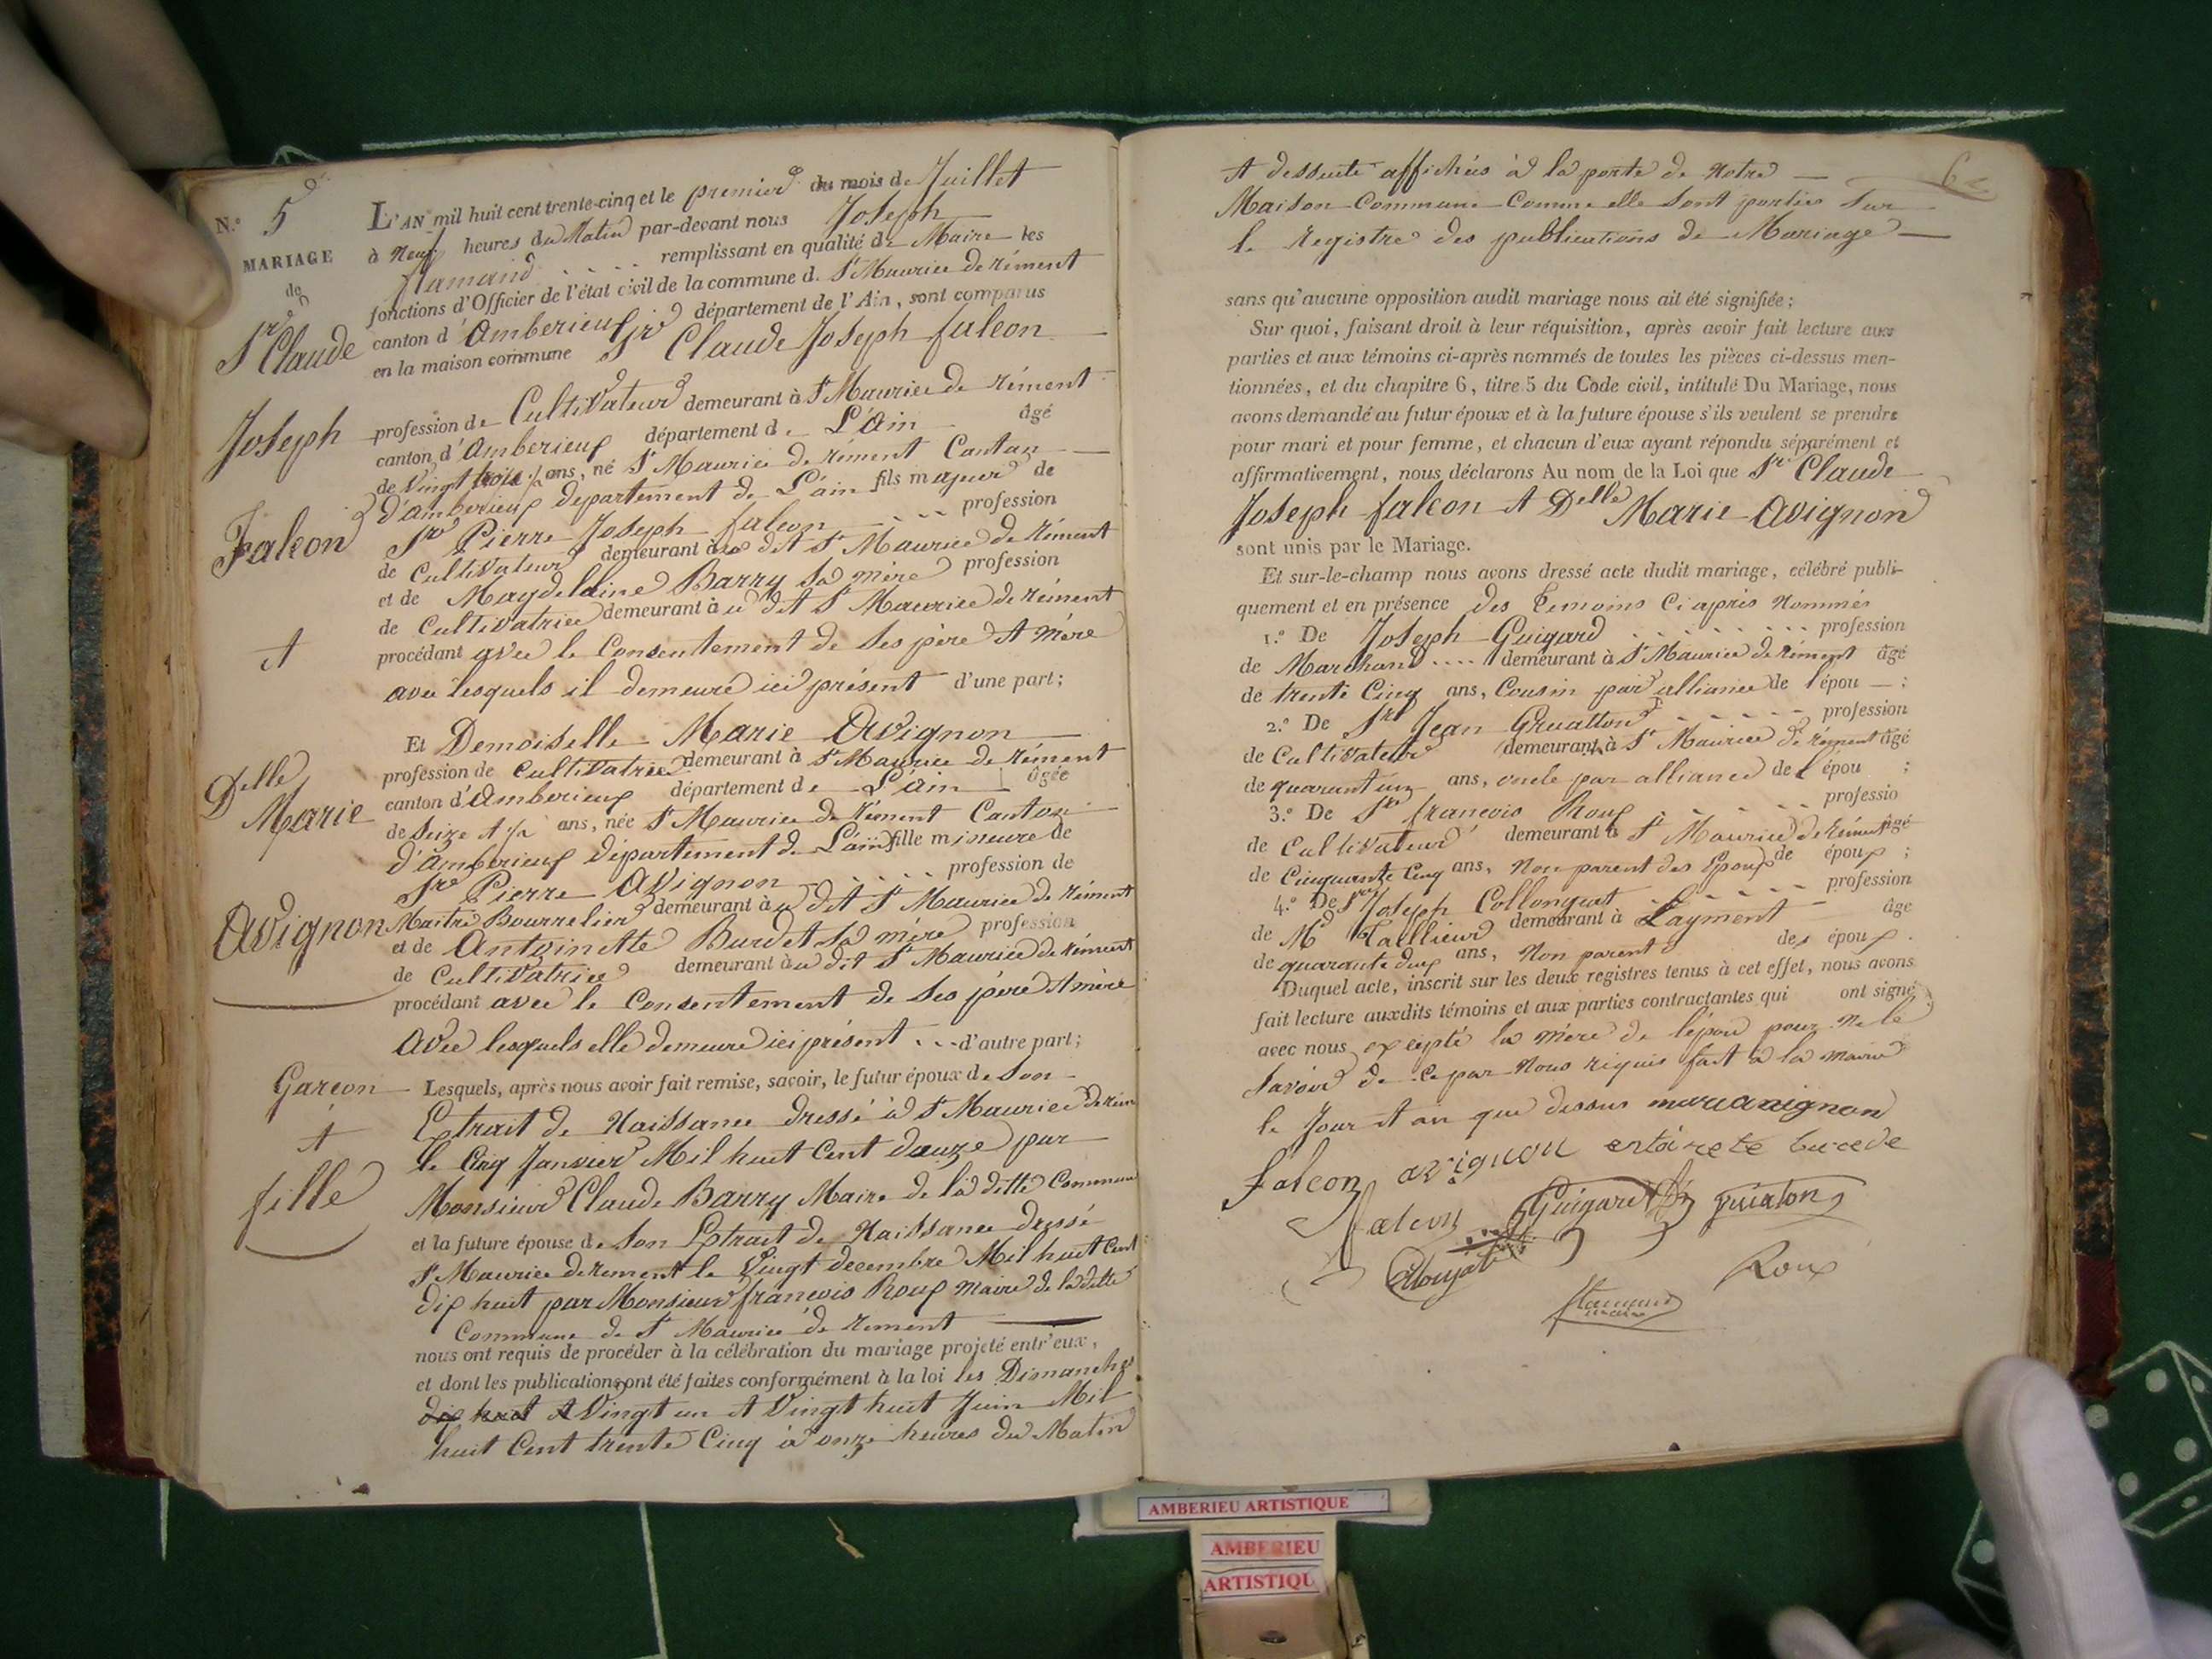 N.° 5
MARIAGE
de
Sr Claude
Joseph
Falcon
et
Delle
Marie
Avignon
Garcon
et
fille
L'AN mil huit cent trente-cinq et le premier du mois de Juillet
à Neuf heures du Matin par-devant nous Joseph
flamand remplissant en qualité de Maire les
fonctions d'Officier de l'état civil de la commune d. St Maurice de rément
canton d'Amberieux département de l'Ain, sont comparus
en la maison commune Sr Claude Joseph falcon
profession de Cultivateur demeurant à St Maurice de rément
canton d'Amberieux département de L'ain âgé
de Vingt trois ½ ans, né St Maurice de rément Canton
d'amberieux département de L'ain fils majeur de
Sr Pierre Joseph falcon profession
de Cultivateur demeurant au dit St Maurice de rément
et de Magdelaine Barry sa mère profession
de Cultivatrice demeurant à u dit St Maurice de rément
procédant avec le Consentement de ses père et mère
avec lesquels il demeure ici présent d'une part;
Et Demoiselle Marie Avignon
profession de Cultivatrice demeurant à St Maurice de rément
canton d'Amberieux département de L'ain âgée
de Seize et ½ ans, née St Maurice de Rément Canton
d'amberieux Département de L'ain fille mineure de
Sr Pierre Avignon profession de
Maitre Bourrelier demeurant à u dit St Maurice de rément
et de Antoinette Burdet sa mère profession
de Cultivatrice demeurant à u dit St Maurice de rément
procédant avec le Consentement de ses père et mère
Avec lesquels elle demeure ici présent d'autre part;
Lesquels, après nous avoir fait remise, savoir, le futur époux de Son
Extrait de Naissance dressé à St Maurice de rém
le Cinq Janvier Mil huit Cent douze par
Monsieur Claude Barry Maire de la ditte Commune
et la future épouse de Son Extrait de Naissance dressé
St Maurice de rement le Vingt decembre Mil huit Cent
dix huit par Monsieur francois Roux maire de la ditte
Commune de St Maurice de rement
nous ont requis de procéder à la célébration du mariage projeté entr'eux,
et dont les publications ont été faites conformément à la loi les Dimanches
dix huit et Vingt un et Vingt huit Juin Mil
huit Cent trente Cinq à onze heures du Matin
6
et dessuite affichés à la porte de notre
Maison Commune Comme elle sont portées sur
le Registre des publications de Mariage
sans qu'aucune opposition audit mariage nous ait été signifiée;
Sur quoi, faisant droit à leur réquisition, après avoir fait lecture aux
parties et aux témoins ci-après nommés de toutes les pièces ci-dessus men-
tionnées, et du chapitre 6, titre 5 du Code civil, intitulé Du Mariage, nous
avons demandé au futur époux et à la future épouse s'ils veulent se prendre
pour mari et pour femme, et chacun d'eux ayant répondu séparément et
affirmativement, nous déclarons Au nom de la Loi que Sr Claude
Joseph falcon et Delle Marie Avignon
sont unis par le Mariage.
Et sur-le-champ nous avons dressé acte dudit mariage, célébré publi-
quement et en présence des Temoins Ci après Nommés
1.° De Joseph Guigard profession
de Marchand demeurant à St Maurice de rément âgé
de trente Cinq ans, Cousin par alliance de l'épou ;
2.° De Sr Jean Gruatton profession
de Cultivateur demeurant à St Maurice de rément âgé
de quarant un ans, oncle par alliance de l'épou ;
3.° De Sr francois Roux professio
de Cultivateur demeurant à St Maurice de rément âgé
de Cinquante Cinq ans, Non parent des Epoux de époux ;
4.° De Sr Joseph Collonguat profession
de Md Taillieur demeurant à Layment âge
de quarante deux ans, Non parent des époux.
Duquel acte, inscrit sur les deux registres tenus à cet effet, nous avons
fait lecture auxdits témoins et aux parties contractantes qui ont signé
avec nous excepté la mère de l'épou pour ne le
savoir de ce par Nous riquis fait à la mairie
le Jour et an que dessus
falcon avignon
Guigard
Roux
flamand
maire
AMBERIEU ARTISTIQUE
AMBERIEU
ARTISTIQU